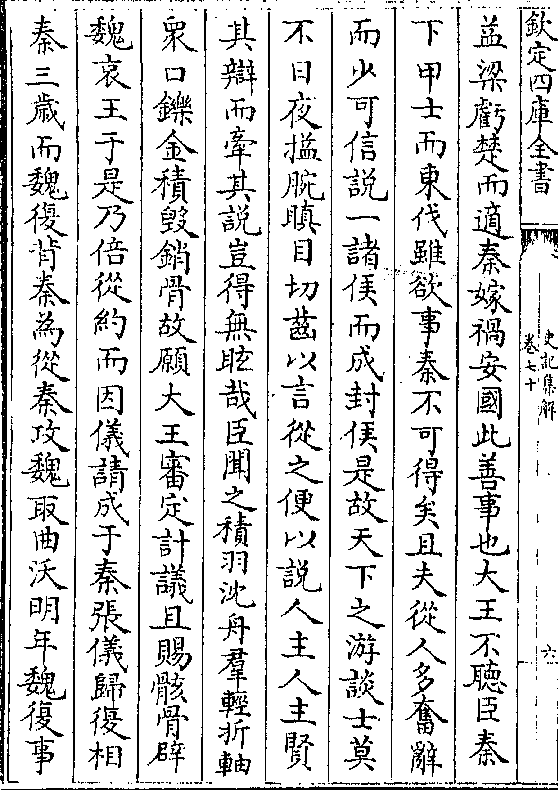 欽定四庫全書
史記集解
卷七十
六
益梁虧楚而適秦嫁禍安國此善事也大王不聽臣秦
下甲士而東伐雖欲事秦不可得矣且夫從人多奮辭
而少可信説一諸侯而成封侯是故天下之游談士莫
不日夜搤腕瞋目切齒以言從之便以説人主人主賢
其辯而牽其説豈得無眩哉臣聞之積羽沈舟羣輕折軸
衆口鑠金積毀銷骨故願大王審定計議且賜骸骨辟
魏哀王于是乃倍從約而因儀請成于秦張儀歸復相
秦三歲而魏復背秦為從秦攻魏取曲沃明年魏復事